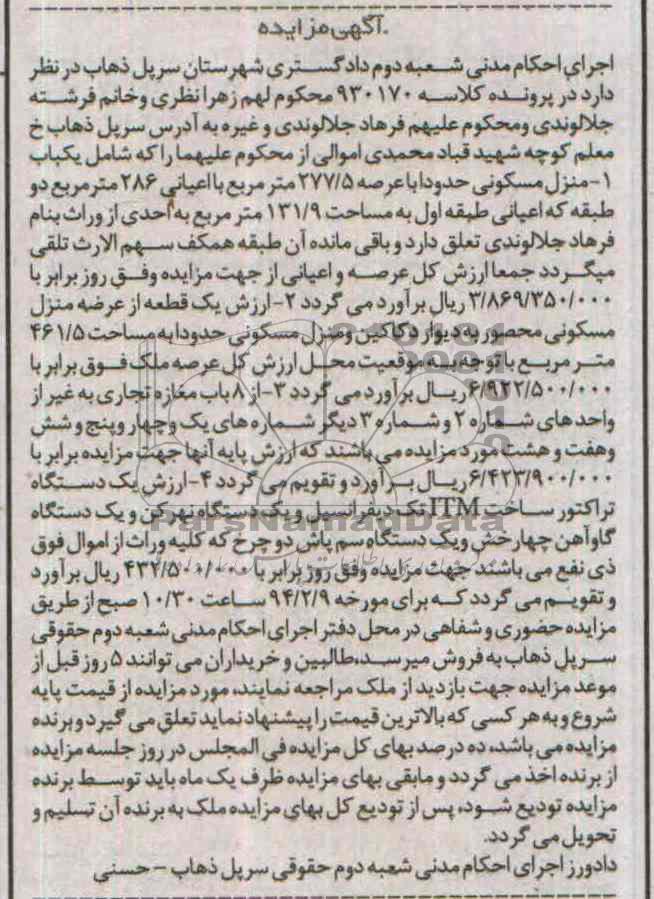 آگهی مزایده
اجرای احکام مدنی شعبه دوم دادگستری شهرستان سرپل ذهاب در نظر
دارد در پرونده کلاسه ۹۳۰۱۷۰ محکوم لهم زهرا نظری و خانم فرشته
جلالوندی و محکوم علیهم فرهاد جلالوندی و غیره به آدرس سرپل ذهاب خ
معلم کوچه شهید قباد محمدی اموالی از محکوم علیهما را که شامل یکباب
۱- منزل مسکونی حدودا با عرصه ۲۷۷/۵ متر مربع با اعیانی ۲۸۶ متر مربع دو
طبقه که اعیانی طبقه اول به مساحت ۱۳۱/۹ متر مربع به احدی از وراث بنام
فرهاد جلالوندی تعلق دارد و باقی مانده آن طبقه همکف سهم الارث تلقی
میگردد جمعا ارزش کل عرصه و اعیانی از جهت مزایده وفق روز برابر با
۳/۸۶۹/۳۵۰/۰۰۰ ریال برآورد می گردد ۲- ارزش یک قطعه از عرضه منزل
مسکونی محصور به دیوار دکاکین و منزل مسکونی حدودا به مساحت ۴۶۱/۵
متر مربع با توجه به موقعیت محل ارزش کل عرصه ملک فوق برابر با
۶/۹۲۲/۵۰۰/۰۰۰ ریال برآورد می گردد ۳- از ۸ باب مغازه تجاری به غیر از
واحدهای شماره ۲ و شماره ۳ دیگر شماره های یک و چهار و پنج و شش
و هفت و هشت مورد مزایده می باشند که ارزش پایه آنها جهت مزایده برابر با
۶/۴۲۳/۹۰۰/۰۰۰ ریال برآورد و تقویم می گردد ۴- ارزش یک دستگاه
تراکتور ساخت ITM تک دیفرانسیل و یک دستگاه نهرکن و یک دستگاه
گاوآهن چهارخش و یک دستگاه سم پاش دو چرخ که کلیه وراث از اموال فوق
ذی نفع می باشند جهت مزایده وفق روز برابر با ۴۳۲/۵۰۰/۰۰۰ ریال برآورد
و تقویم می گردد که برای مورخه ۹۴/۲/۹ ساعت ۱۰/۳۰ صبح از طریق
مزایده حضوری و شفاهی در محل دفتر اجرای احکام مدنی شعبه دوم حقوقی
سرپل ذهاب به فروش میرسد، طالبین و خریداران می توانند ۵ روز قبل از
موعد مزایده جهت بازدید از ملک مراجعه نمایند، مورد مزایده از قیمت پایه
شروع و به هر کسی که بالاترین قیمت را پیشنهاد نماید تعلق می گیرد و برنده
مزایده می باشد، ده درصد بهای کل مزایده فی المجلس در روز جلسه مزایده
از برنده اخذ می گردد و مابقی بهای مزایده ظرف یک ماه باید توسط برنده
مزایده تودیع شود، پس از تودیع کل بهای مزایده ملک به برنده آن تسلیم و
تحویل می گردد.
دادورز اجرای احکام مدنی شعبه دوم حقوقی سرپل ذهاب - حسنی
ParsNamadData